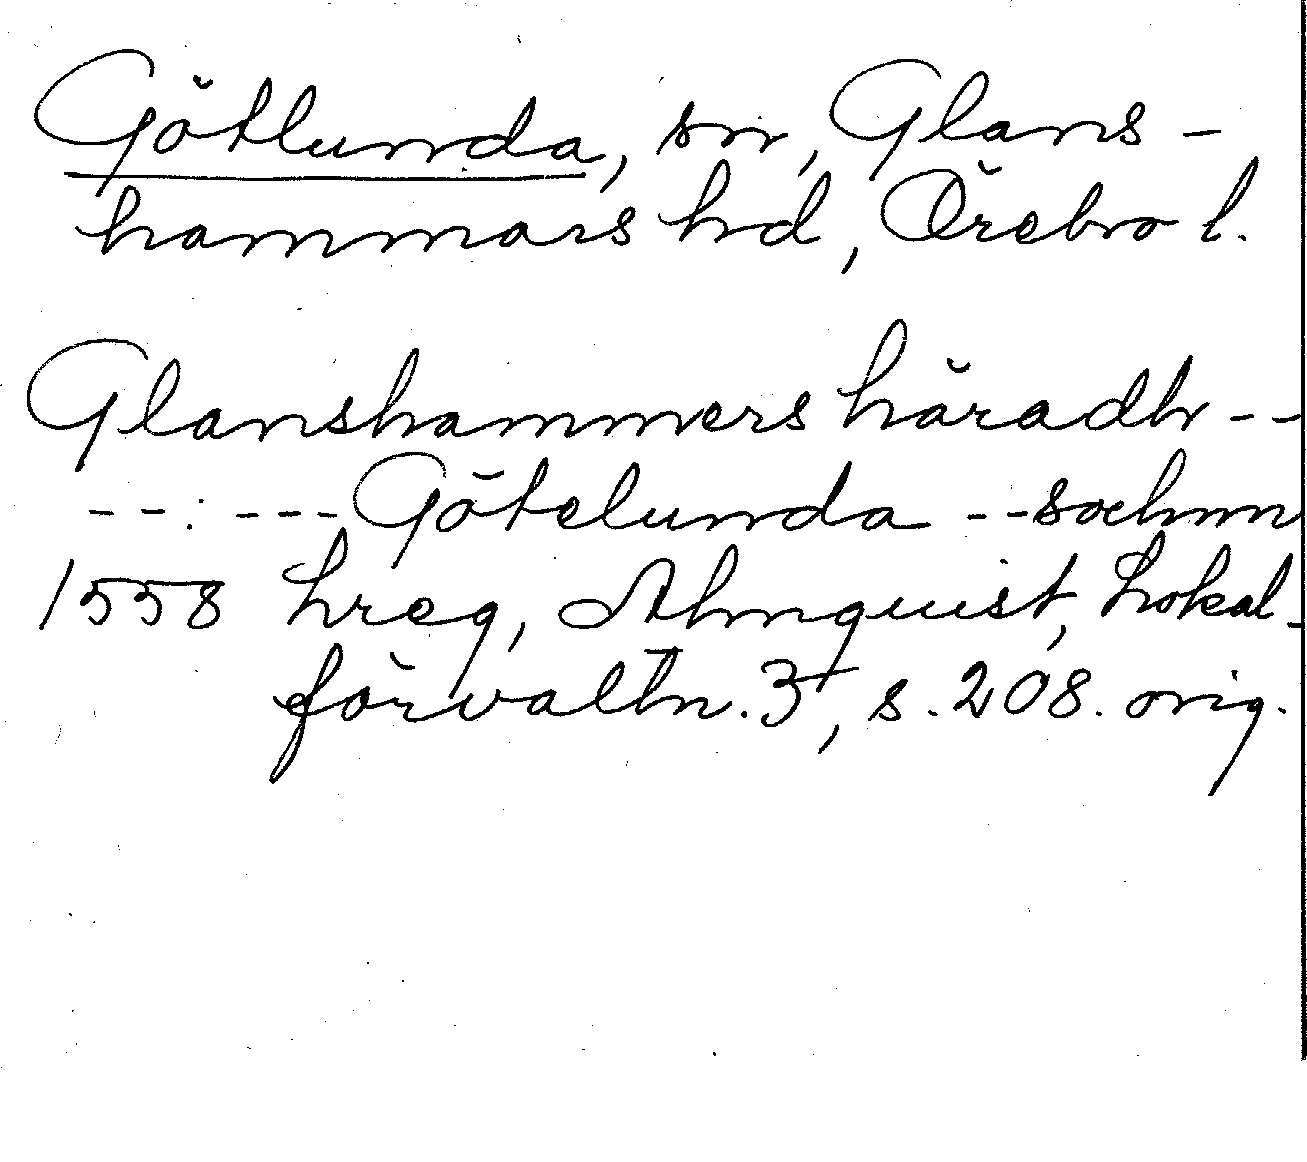 Götlunda, sn, Glans-
hammars hd, Örebro l.
Glanshammers häradh --
--: --- Götelunda -- sochnn
1558 hreg, Almquist, Lokal-
förvaltn. 3, s. 208. orig.